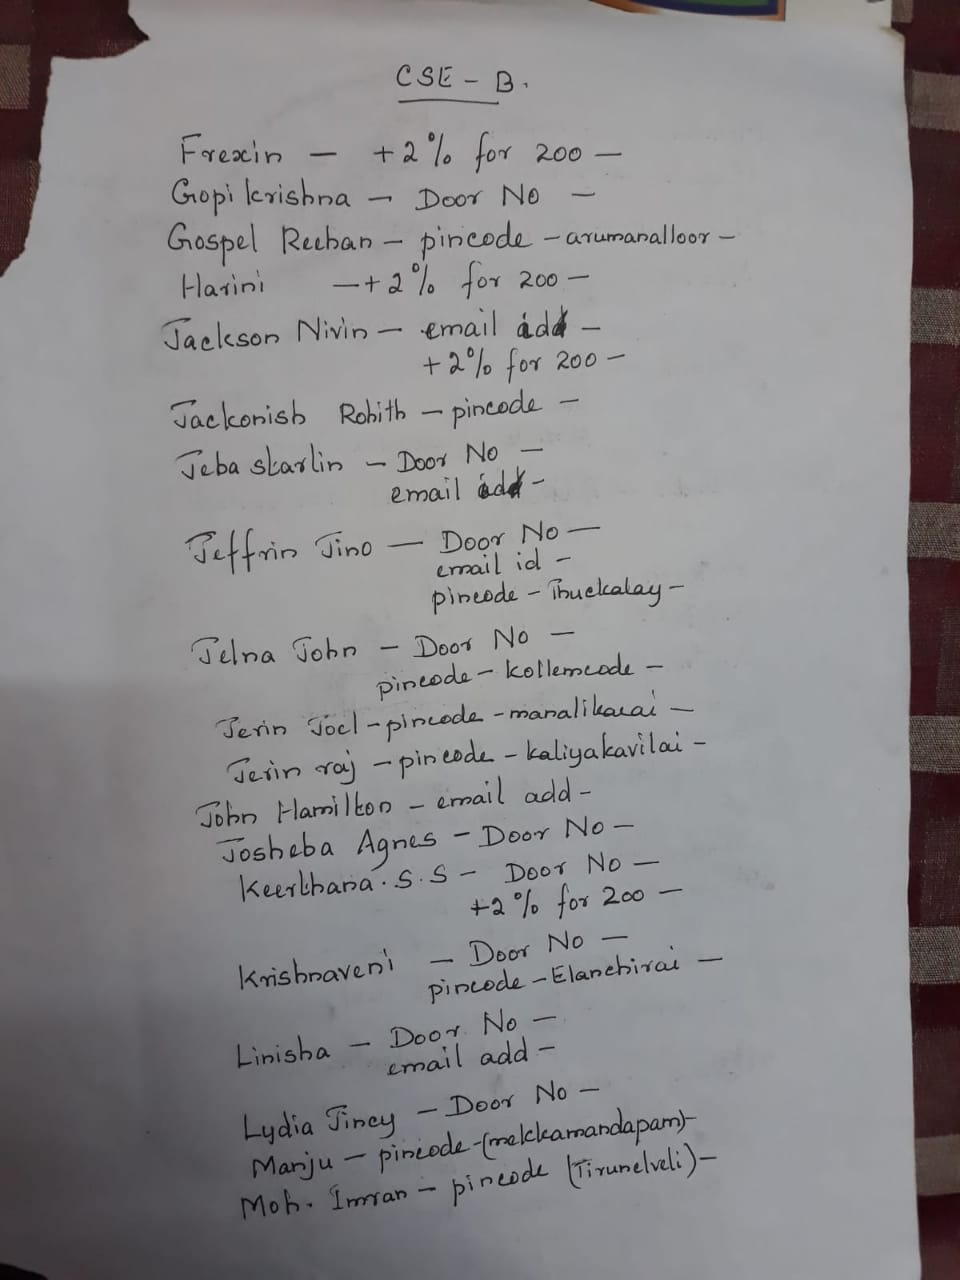 CSE - B.
Frexin - +2% for 200 -
Gopi krishna - Door No -
Gospel Reeban - pincode - arumanalloor -
Harini - +2% for 200 -
Jackson Nivin - email add -
+2% for 200 -
Jackonish Rohith - pincode -
Jeba starlin - Door No -
email add -
Jeffrin Jino - Door No -
email id -
pincode - Thuckalay -
Jelna John - Door No -
pincode - kollemcode -
Jerin Joel - pincode - manalikarai -
Jerin raj - pincode - kaliyakavilai -
John Hamilton - email add -
Josheba Agnes - Door No -
Keerthana. S. S - Door No -
+2% for 200 -
Krishnaveni - Door No -
pincode - Elanchirai -
Linisha - Door No -
email add -
Lydia Jincy - Door No -
Manju - pincode - (mekkamandapam) -
Moh. Imran - pincode (Tirunelveli) -